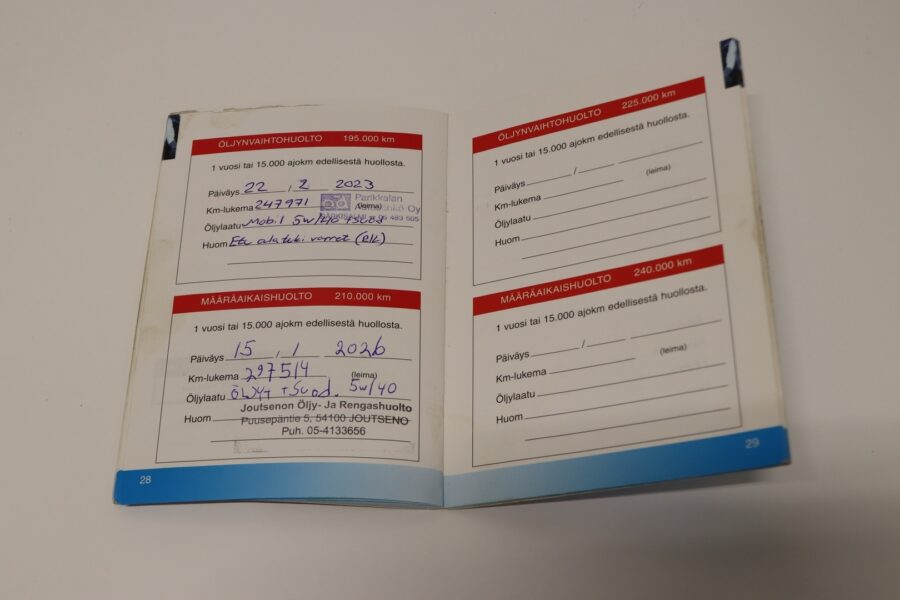 ÖLJYNVAIHTOHUOLTO 195.000 km
1 vuosi tai 15.000 ajokm edellisestä huollosta.
Päiväys 22 / 2 2023
Km-lukema 247971 (leima)
Parikkalan
Oy
Öljylaatu Mobil 5w/40 +suod
Huom Etu alatuki varret
MÄÄRÄAIKAISHUOLTO 210.000 km
1 vuosi tai 15.000 ajokm edellisestä huollosta.
Päiväys 15 / 1 2026
Km-lukema 297514 (leima)
Öljylaatu ÖLJY +suod. 5w/40
Huom
Joutsenon Öljy- Ja Rengashuolto
Puusepäntie 5, 54100 JOUTSENO
Puh. 05-4133656
28
ÖLJYNVAIHTOHUOLTO 225.000 km
1 vuosi tai 15.000 ajokm edellisestä huollosta.
Päiväys /
Km-lukema (leima)
Öljylaatu
Huom
MÄÄRÄAIKAISHUOLTO 240.000 km
1 vuosi tai 15.000 ajokm edellisestä huollosta.
Päiväys /
Km-lukema (leima)
Öljylaatu
Huom
29